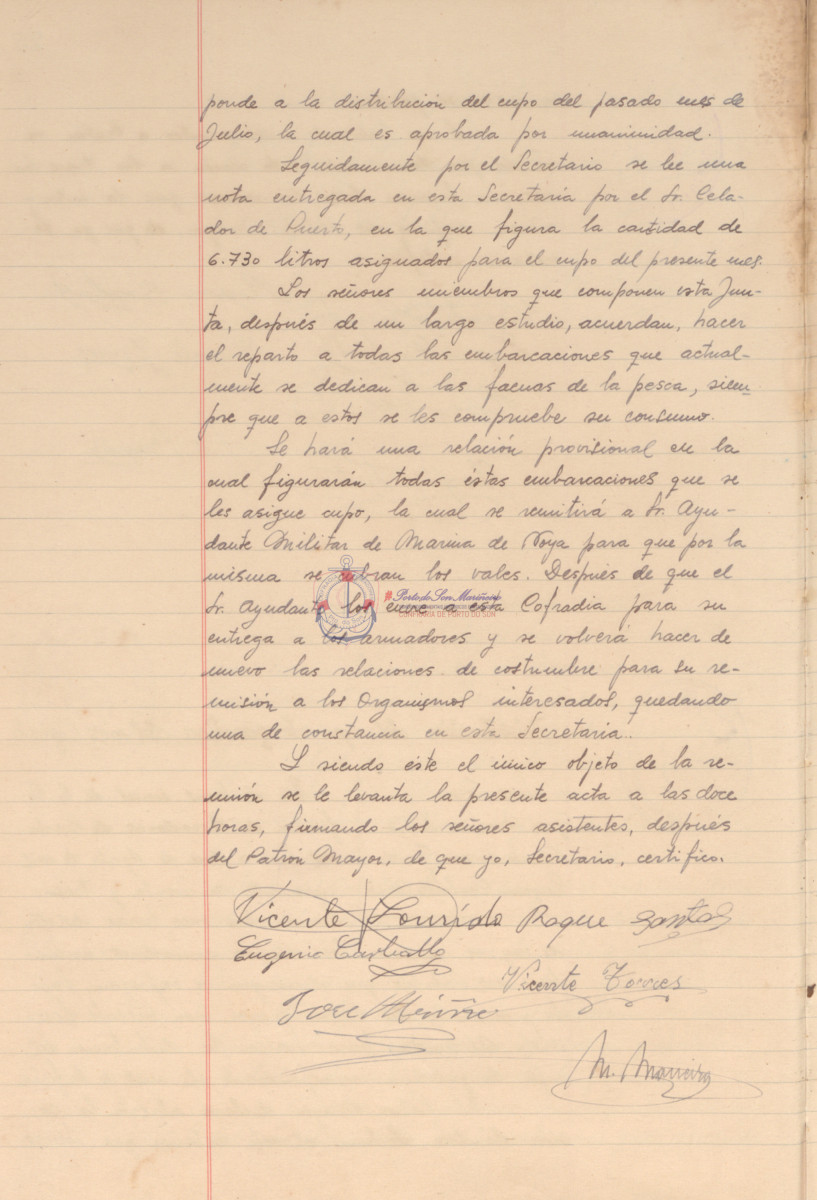 ponde a la distribución del cupo del pasado mes de
Julio, la cual es aprobada por unanimidad.
Seguidamente por el Secretario se lee una
nota entregada en esta Secretaría por el Sr. Cela-
dor de Puerto, en la que figura la cantidad de
6.730 litros asignados para el cupo del presente mes.
Los señores miembros que componen esta Jun-
ta, después de un largo estudio, acuerdan, hacer
el reparto a todas las embarcaciones que actual-
mente se dedican a las faenas de la pesca, siem-
pre que a estos se les compruebe su consumo.
Se hará una relación provisional en la
cual figurarán todas éstas embarcaciones que se
les asigne cupo, la cual se remitirá a Sr. Ayu-
dante Militar de Marina de Noya para que por la
misma se cubran los vales. Después de que el
Sr. Ayudante los envie a esta Cofradia para su
entrega a los armadores y se volverá hacer de
nuevo las relaciones de costumbre para su re-
misión a los Organismos interesados, quedando
una de constancia en esta Secretaría..
Y siendo este el único objeto de la re-
unión se le levanta la presente acta a las doce
horas, firmando los señores asistentes, después
del Patrón Mayor, de que yo, Secretario, certifico.
Vicente Lourido Roque Santos
Eugenio Carballo
Vicente Torres
Jose
M. Maneiro
Porto do Son Mariñeiro
CONFRARÍA DE PORTO DO SON